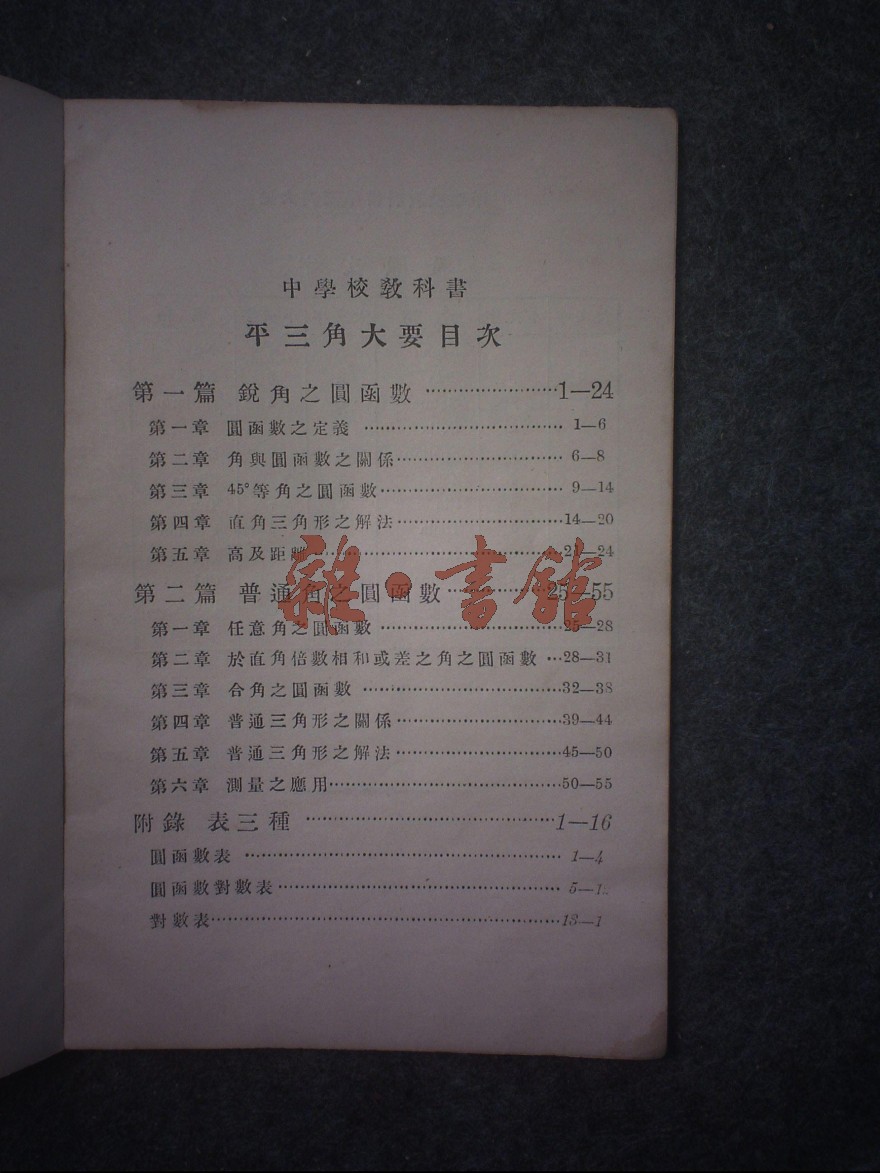 中學校敎科書
平三角大要目次
第一篇 銳角之圓函數 ……………………1—24
第一章 圓函數之定義 ……………………1—6
第二章 角與圓函數之關係……………………6—8
第三章 45°等角之圓函數……………………9—14
第四章 直角三角形之解法……………………14—20
第五章 高及距離……………………21—24
第二篇 普通角之圓函數……………………25—55
第一章 任意角之圓函數……………………25—28
第二章 於直角倍數相和或差之角之圓函數 …28—31
第三章 合角之圓函數 ……………………32—38
第四章 普通三角形之關係……………………39—44
第五章 普通三角形之解法……………………45—50
第六章 測量之應用……………………50—55
附錄 表三種 ……………………1—16
圓函數表 ……………………1—4
圓函數對數表……………………5—1
對數表……………………13—1
雜·書館